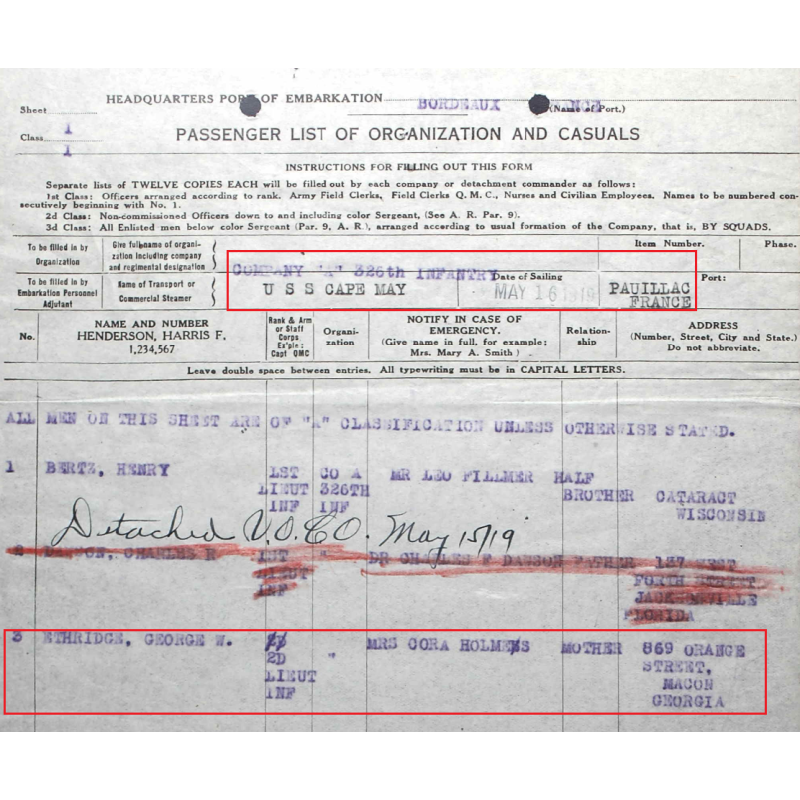 HEADQUARTERS PORT OF EMBARKATION BORDEAUX FRANCE
(Name of Port.)
Sheet
Class 1
1
PASSENGER LIST OF ORGANIZATION AND CASUALS
INSTRUCTIONS FOR FILLING OUT THIS FORM
Separate lists of TWELVE COPIES EACH will be filled out by each company or detachment commander as follows:
1st Class: Officers arranged according to rank. Army Field Clerks, Field Clerks Q. M. C., Nurses and Civilian Employees. Names to be numbered con-
secutively beginning with No. 1.
2d Class: Non-commissioned Officers down to and including color Sergeant, (See A. R. Par. 9).
3d Class: All Enlisted men below color Sergeant (Par. 9, A. R.), arranged according to usual formation of the Company, that is, BY SQUADS.
To be filled in by
Organization
Give full name of organi-
zation including company
and regimental designation
COMPANY "A" 326th INFANTRY
Item Number.
Phase.
To be filled in by
Embarkation Personnel
Adjutant
Name of Transport or
Commercial Steamer
U S S CAPE MAY
Date of Sailing
MAY 16 1919
PAUILLAC
FRANCE
Port:
No.
NAME AND NUMBER
HENDERSON, HARRIS F.
1,234,567
Rank & Arm
or Staff
Corps
Ex'ple:
Capt QMC
Organi-
zation
NOTIFY IN CASE OF
EMERGENCY.
(Give name in full. for example:
Mrs. Mary A. Smith)
Relation-
ship
ADDRESS
(Number, Street, City and State.)
Do not abbreviate.
Leave double space between entries. All typewriting must be in CAPITAL LETTERS.
ALL MEN ON THIS SHEET ARE OF "A" CLASSIFICATION UNLESS OTHERWISE STATED.
1 BERTZ, HENRY 1ST CO A MR LEO FILLMER HALF
LIEUT 326TH BROTHER CATARACT
INF INF WISCONSIN
Detached V.O.C.O. May 15/19
2 DAWSON, CHARLES R 1ST " DR CHARLES F DAWSON FATHER 137 WEST
LIEUT FORTH STREET
INF JACKSONVILLE
FLORIDA
3 ETHRIDGE, GEORGE W. " MRS CORA HOLMES MOTHER 869 ORANGE
2D STREET,
LIEUT MACON
INF GEORGIA